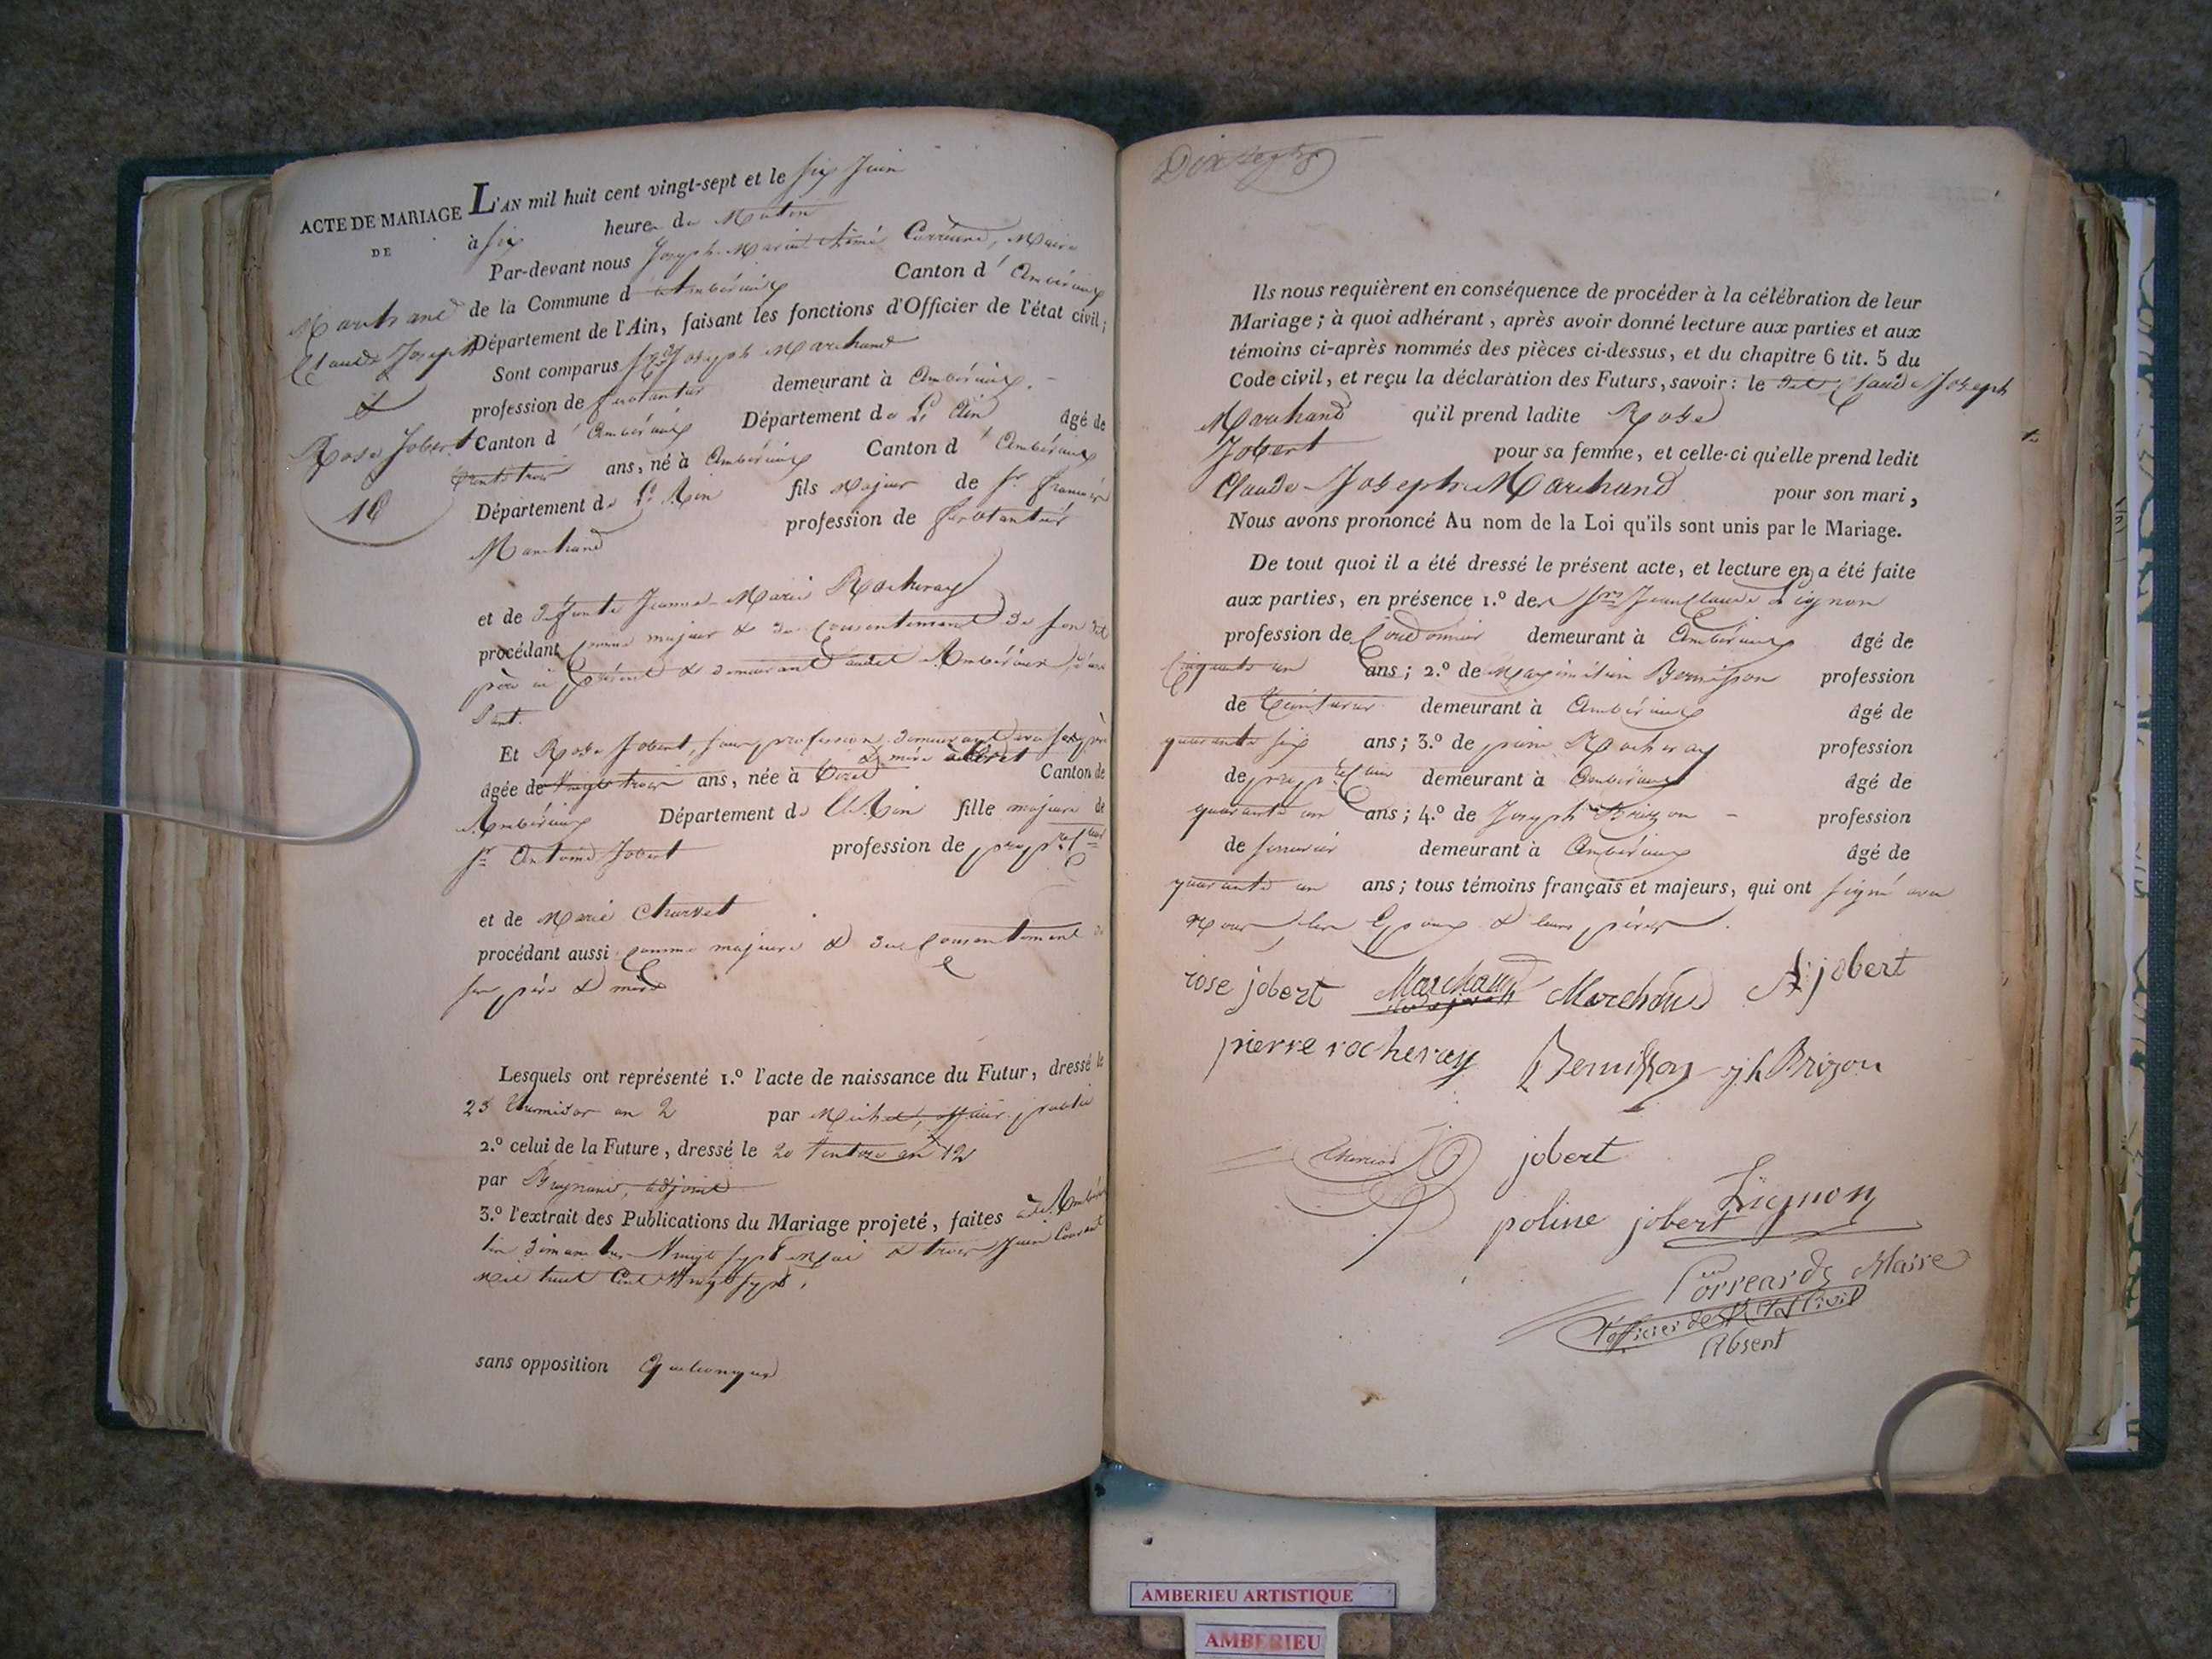 ACTE DE MARIAGE
DE
Marchand
Claude Joseph
&
Rose Jobert
18
L'AN mil huit cent vingt-sept et le six Juin
à six heure du Matin
Par-devant nous Joseph Marie Aimé Maire
de la Commune d'Ambérieux Canton d'Ambérieux
Département de l'Ain, faisant les fonctions d'Officier de l'état civil;
Sont comparus Joseph Marchand
profession de ferblantier demeurant à Ambérieux.
Canton d'Ambérieux Département de L'Ain âgé de
trente trois ans, né à Ambérieux Canton d'Ambérieux
Département de L'Ain fils majeur de Sr. francois
Marchand profession de ferblantier
et de défunte Jeanne Marie Rocheray
procédant comme majeur & du consentement de son dit
père ici présent & demeurant audit Ambérieux
Et Rose Jobert, sans profession, demeurant avec ses père
& mère
âgée de Vingt trois ans, née à Canton de
Ambérieux Département de L'Ain fille majeure de
Sr. Antoine Jobert profession de
et de Marie Charvet
procédant aussi comme majeure & du consentement de
ses père & mère
Lesquels ont représenté 1.º l'acte de naissance du Futur, dressé le
23 thermidor an 2 par Michel, officier public
2.º celui de la Future, dressé le 20 Ventose an 12
par adjoint
3.º l'extrait des Publications du Mariage projeté, faites
les dimanches Vingt sept Mai & trois Juin Courant
Mil huit Cent Vingt sept.
sans opposition Quelconque
Ils nous requièrent en conséquence de procéder à la célébration de leur
Mariage ; à quoi adhérant, après avoir donné lecture aux parties et aux
témoins ci-après nommés des pièces ci-dessus, et du chapitre 6 tit. 5 du
Code civil, et reçu la déclaration des Futurs, savoir : le dit Claude Joseph
Marchand qu'il prend ladite Rose
Jobert pour sa femme, et celle-ci qu'elle prend ledit
Claude Joseph Marchand pour son mari,
Nous avons prononcé Au nom de la Loi qu'ils sont unis par le Mariage.
De tout quoi il a été dressé le présent acte, et lecture en a été faite
aux parties, en présence 1.º des Srs Jean Claude Lignon
profession de Cordonnier demeurant à Ambérieux âgé de
Cinquante un ans ; 2.º de Maximilien Bernisson profession
de teinturier demeurant à Ambérieux âgé de
quarante six ans ; 3.º de pierre Rocheray profession
de demeurant à Ambérieux âgé de
quarante un ans ; 4.º de Joseph Brizon profession
de serrurier demeurant à Ambérieux âgé de
quarante un ans ; tous témoins français et majeurs, qui ont signé avec
Nous les Epoux & leurs pères.
rose jobert Marchand Marchand A. jobert
pierre rocheray Bernisson jh Brizon
jobert
Lignon
poline jobert
Maire
l'officier de l'Etat Civil
Absent
AMBERIEU ARTISTIQUE
AMBERIEU